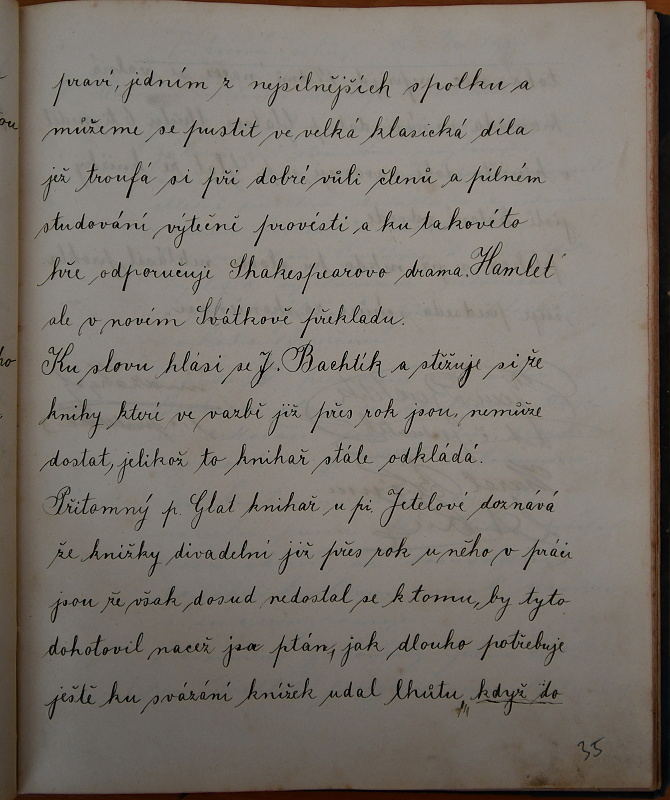 praví, jedním z nejsilnějších spolku a
můžeme se pustit ve velká klasická díla
jež troufá si při dobré vůli členů a pilném
studování výtečně provésti a ku takovéto
hře odporučuje Shakespearovo drama. Hamlet
ale v novém Svátkově překladu.
Ku slovu hlásí se J. Bachtík a stěžuje si že
knihy které ve vazbě již přes rok jsou, nemůže
dostat, jelikož to knihař stále odkládá.
Přítomný p. Glat knihař u pí. Jetelové doznává
že knížky divadelní již přes rok u něho v práci
jsou že však dosud nedostal se k tomu, by tyto
dohotovil načež jsa ptán, jak dlouho potřebuje
ještě ku svázání knížek udal lhůtu když do
35